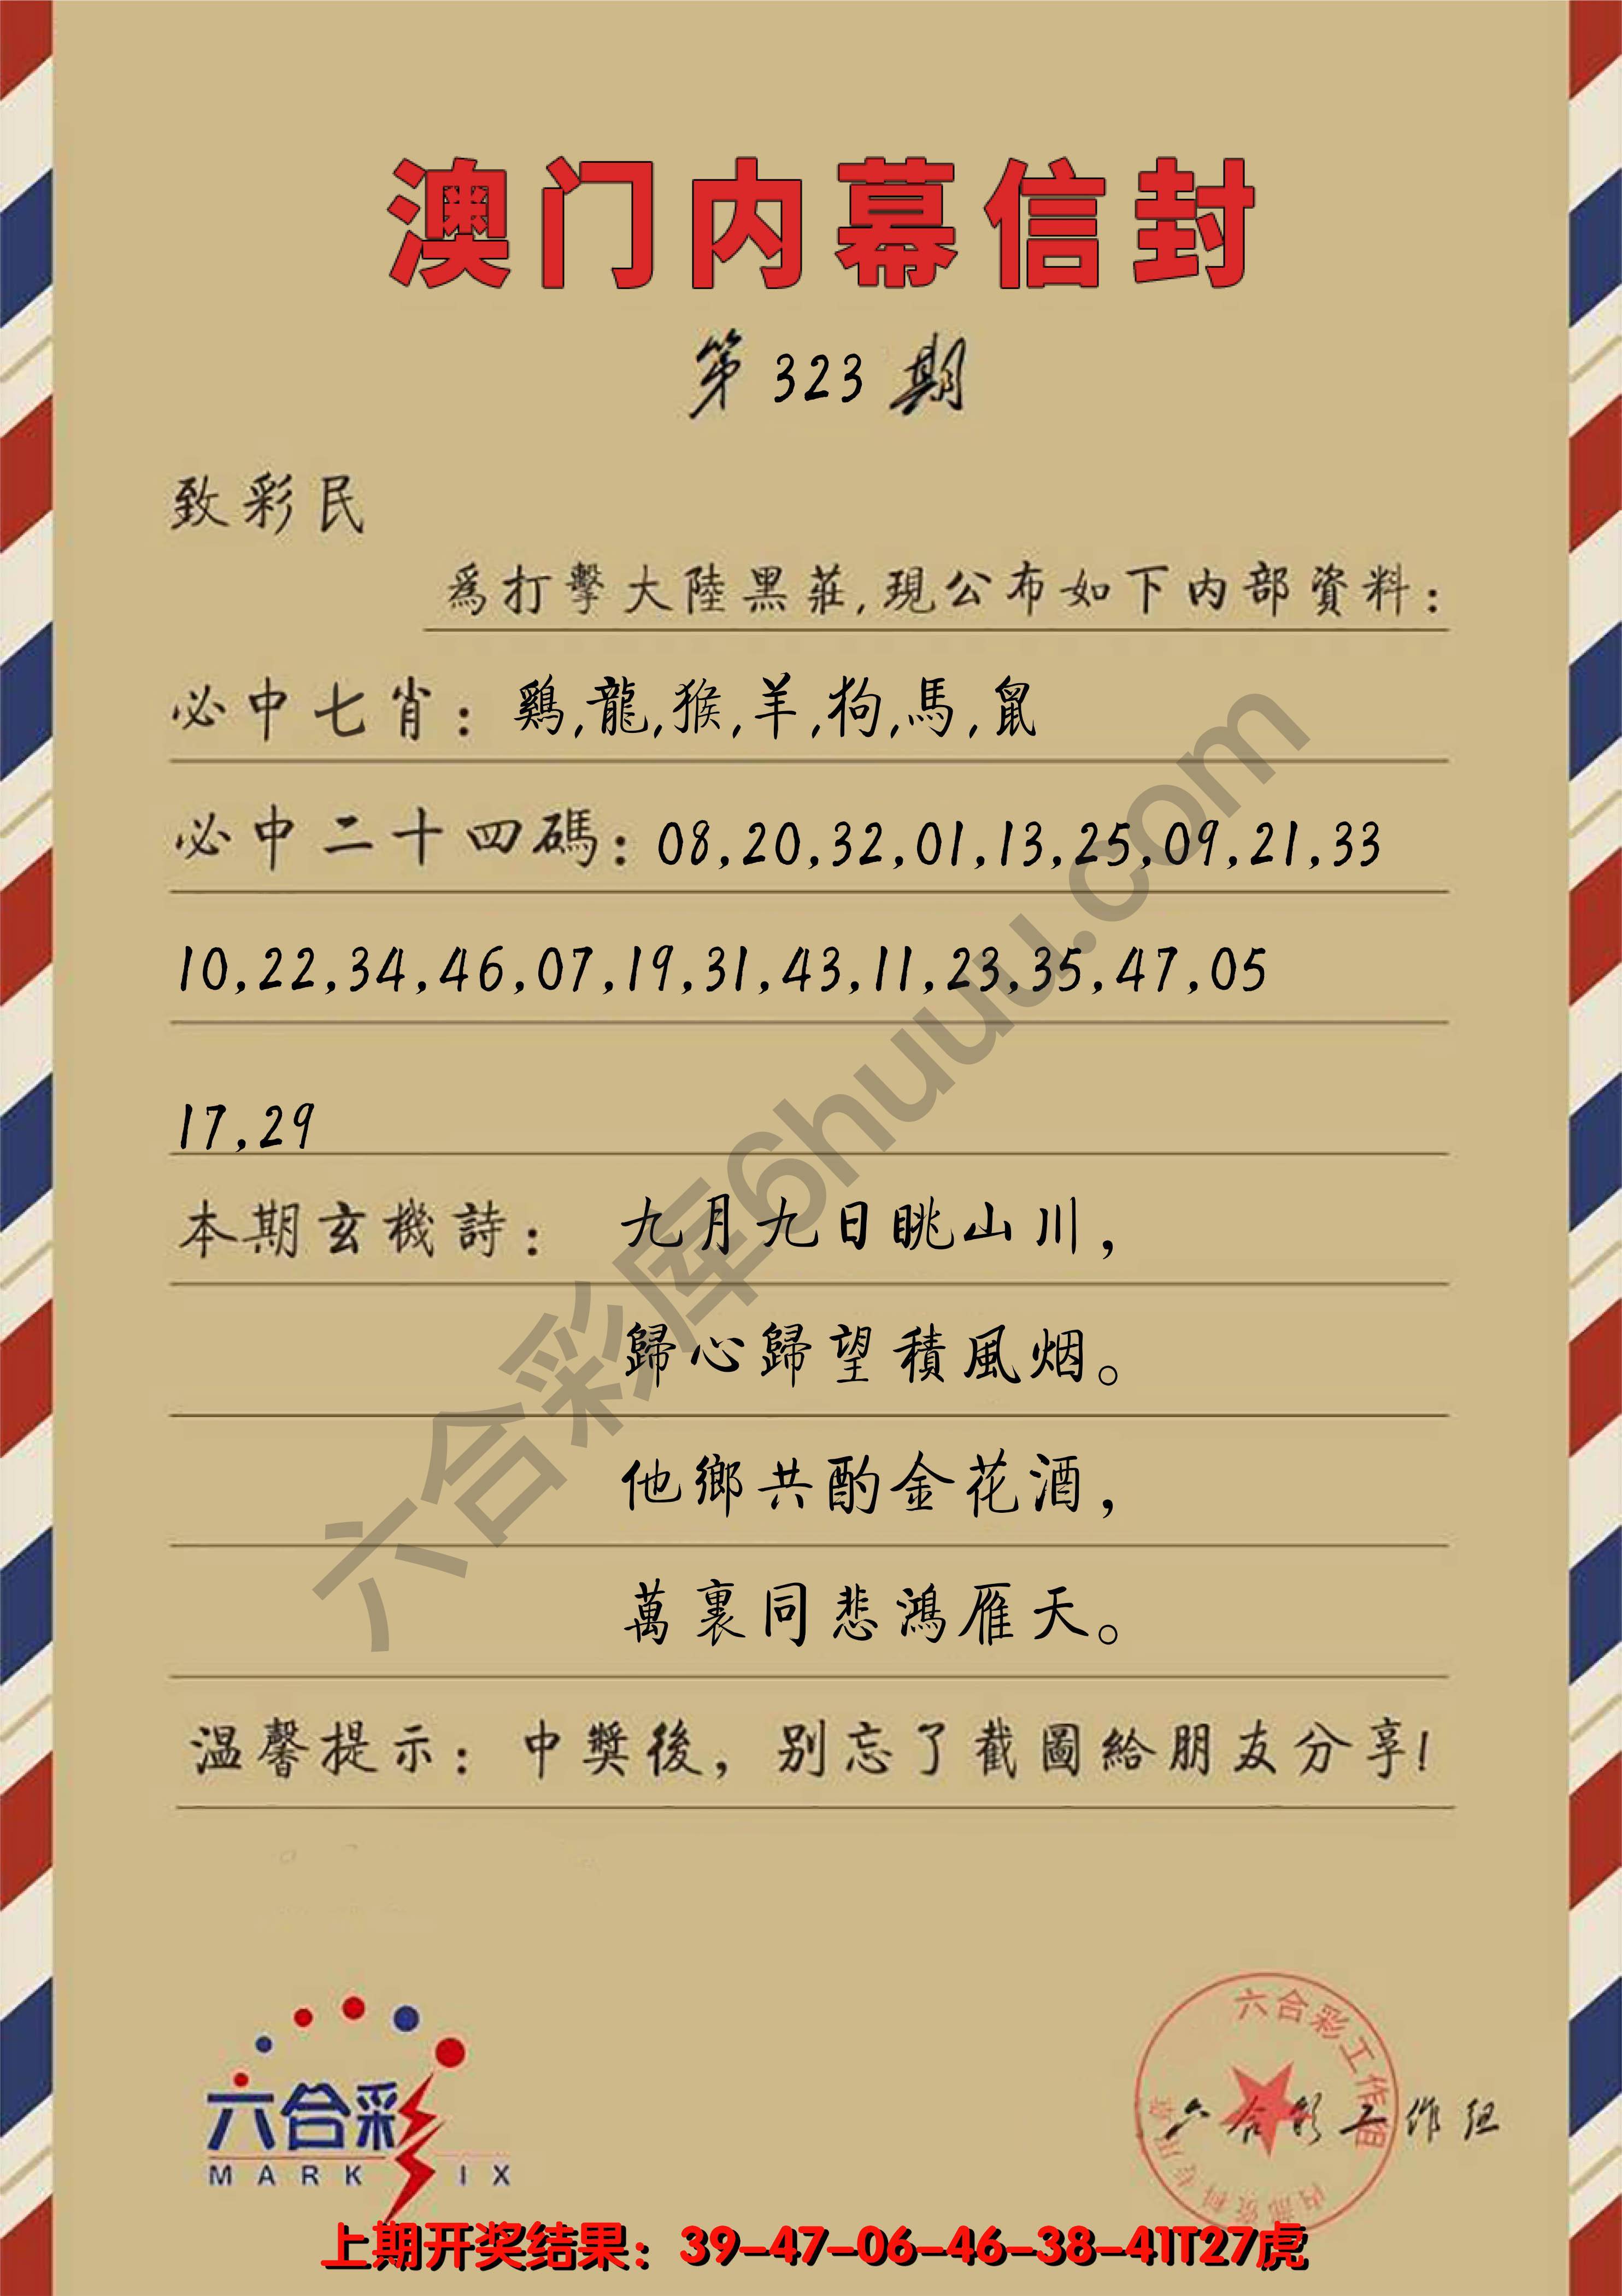 澳门内幕信封
第 323 期
致彩民
爲打擊大陸黑莊,現公布如下内部資料:
必中七肖: 鷄,龍,猴,羊,狗,馬,鼠
必中二十四碼: 08,20,32,01,13,25,09,21,33
10,22,34,46,07,19,31,43,11,23,35,47,05
17,29
本期玄機詩: 九月九日眺山川,
歸心歸望積風烟。
他鄉共酌金花酒,
萬裏同悲鴻雁天。
温馨提示: 中獎後, 别忘了截圖給朋友分享!
六合彩库6huuu.com
六合彩
MARK IX
六合彩工作组
六合彩工作组
上期开奖结果: 39-47-06-46-38-41T27虎